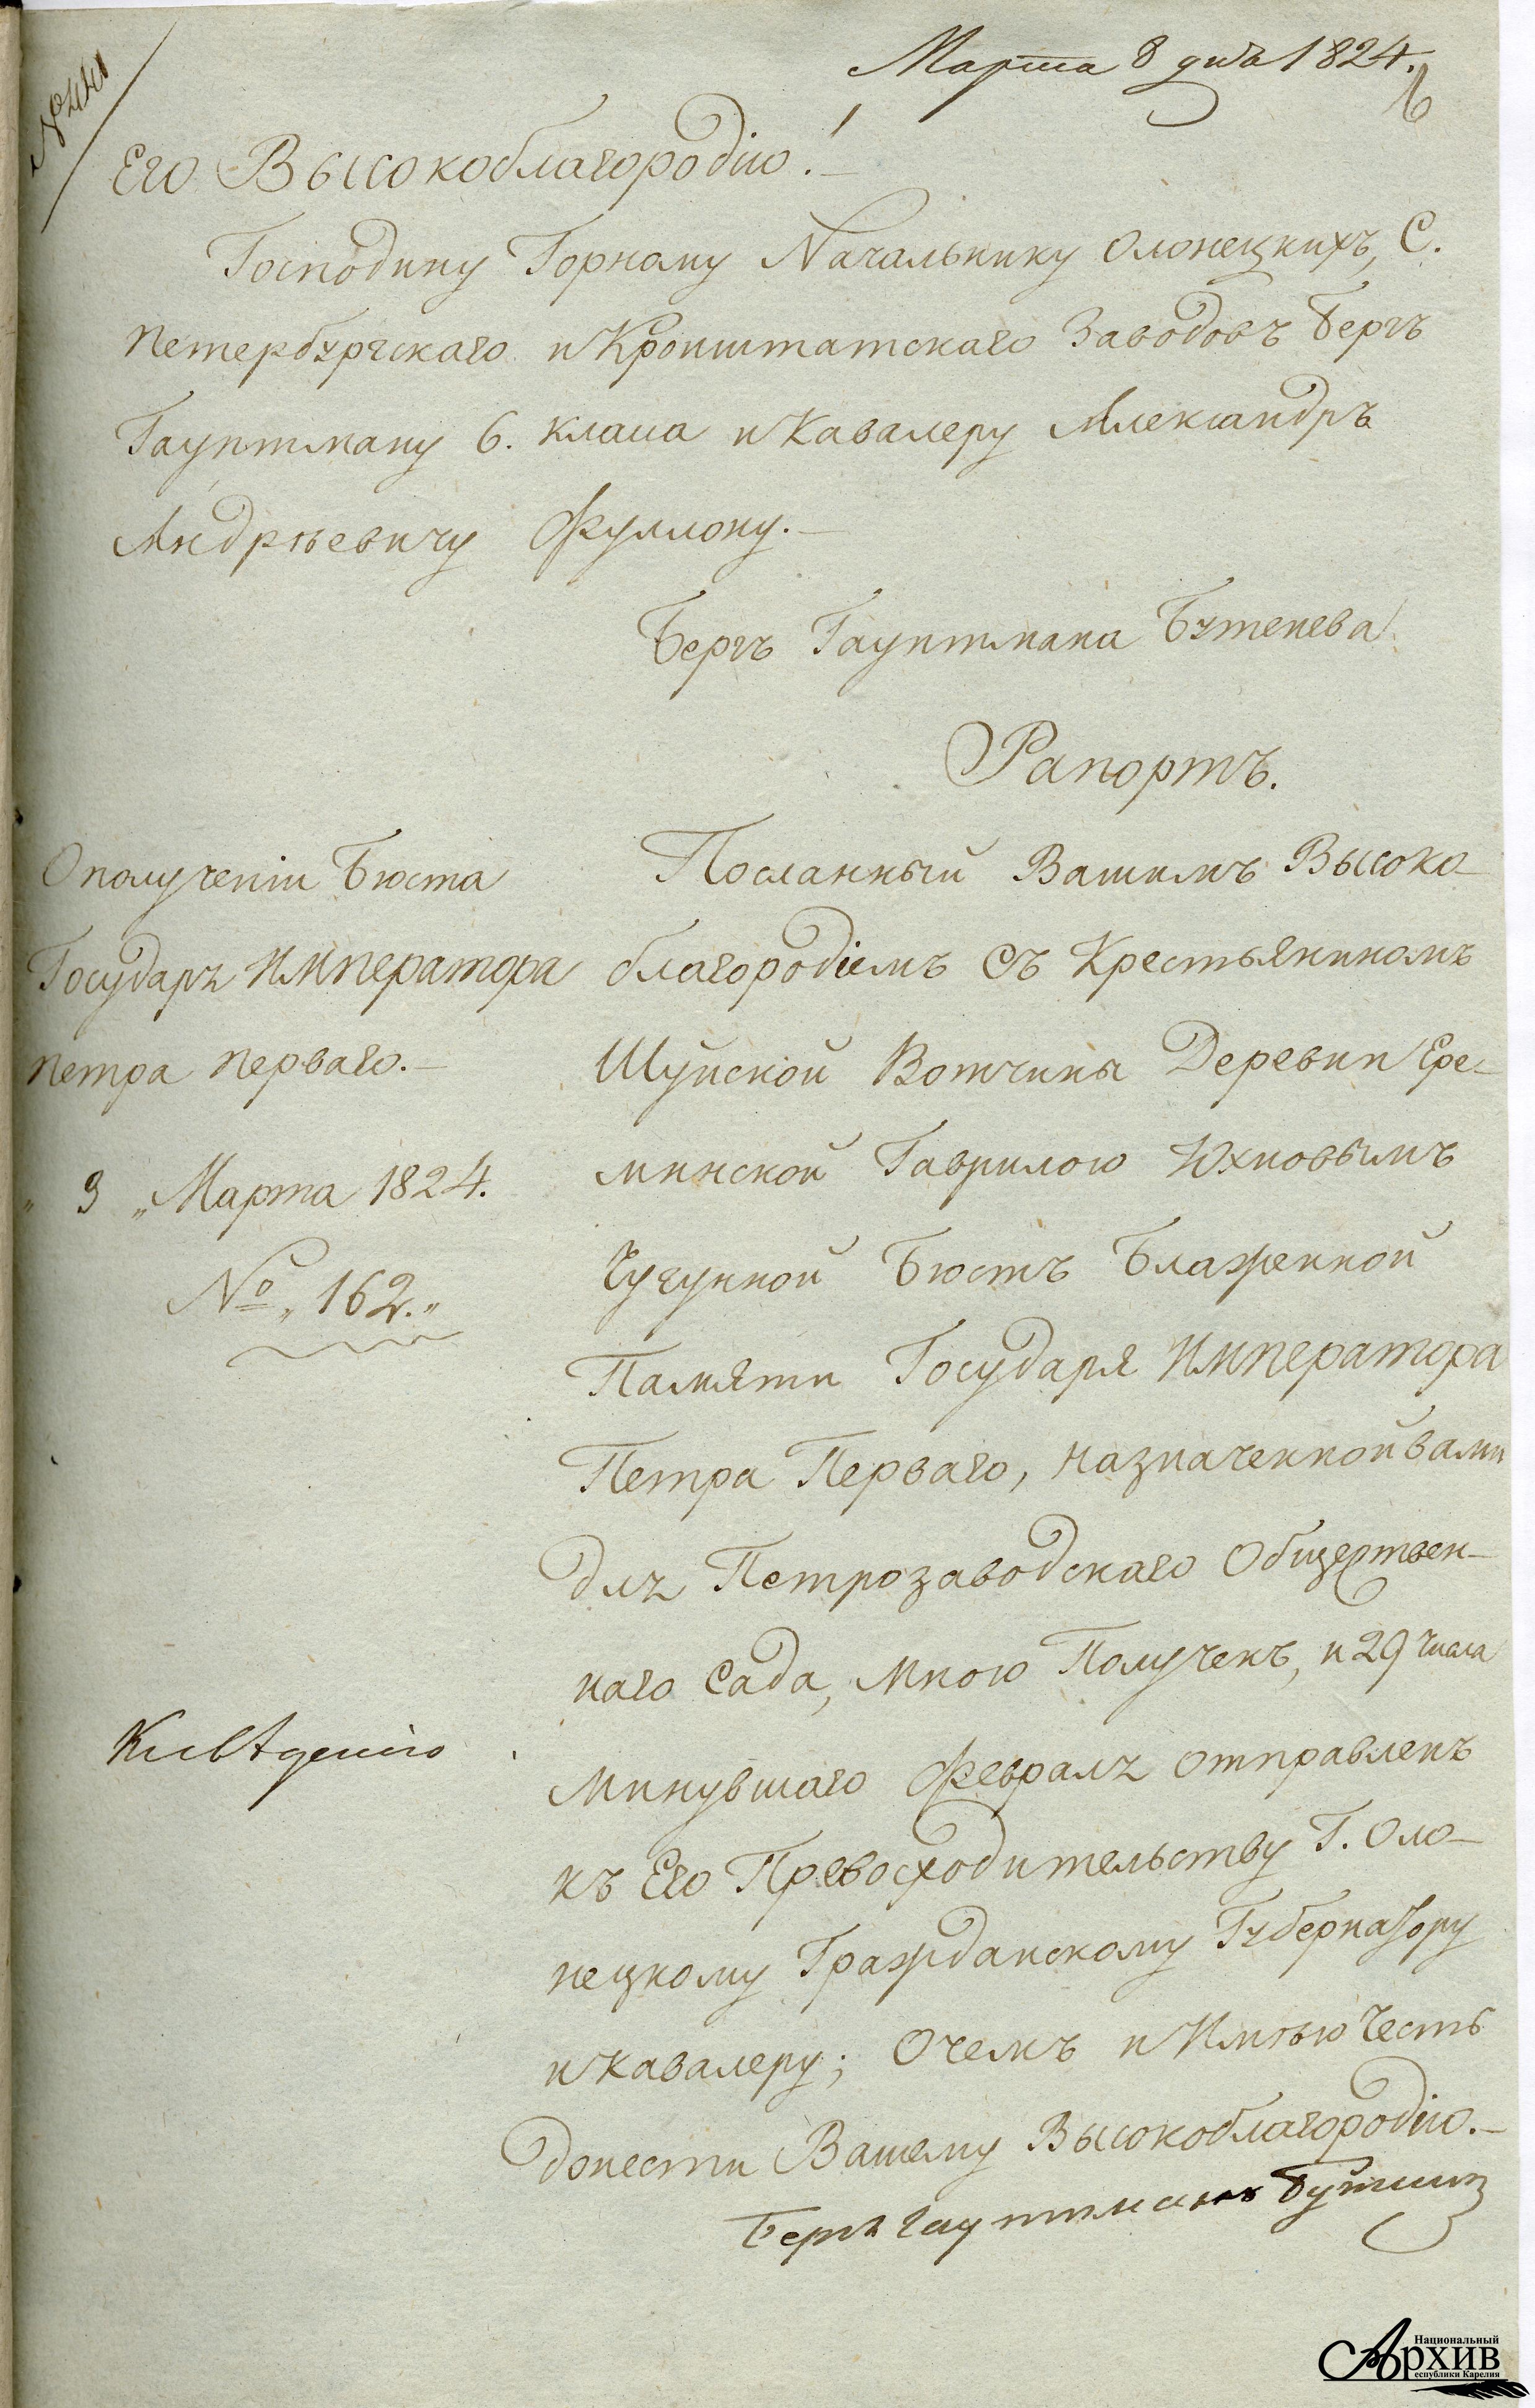 Марта 8 дня 1824.
6
Его Высокоблагородію!
Господину Горному Начальнику Олонецкихъ, С.
Петербургскаго и Кронштатскаго Заводовъ Бергъ
Гауптману 6. класа и Кавалеру Александръ
Андрѣевичу Фуллону.—
Бергъ Гауптмана Бутенева
Рапортъ.
О полученіи Бюста
Государя Императора
Петра Перваго.—
" 3 " Марта 1824.
№ " 162. "
Посланный Вашимъ Высоко-
благородіемъ съ Крестьяниномъ
Шуйской Вотчины Деревни Ере-
минской Гаврилою Юхновымъ
Чугунной Бюстъ Блаженной
Памяти Государя Императора
Петра Перваго, назначенной вами
для Петрозаводскаго Обществен-
наго Сада, мною Полученъ, и 29 числа
Минувшаго Февраля отправленъ
къ Его Превосходительству Г. Оло-
нецкому Гражданскому Губернатору
и Кавалеру; О чемъ и Имѣю Честь
донести Вашему Высокоблагородію.—
Бергъ Гауптманъ Бутеневъ
К свѣденію
Национальный
Архив
Республики Карелия